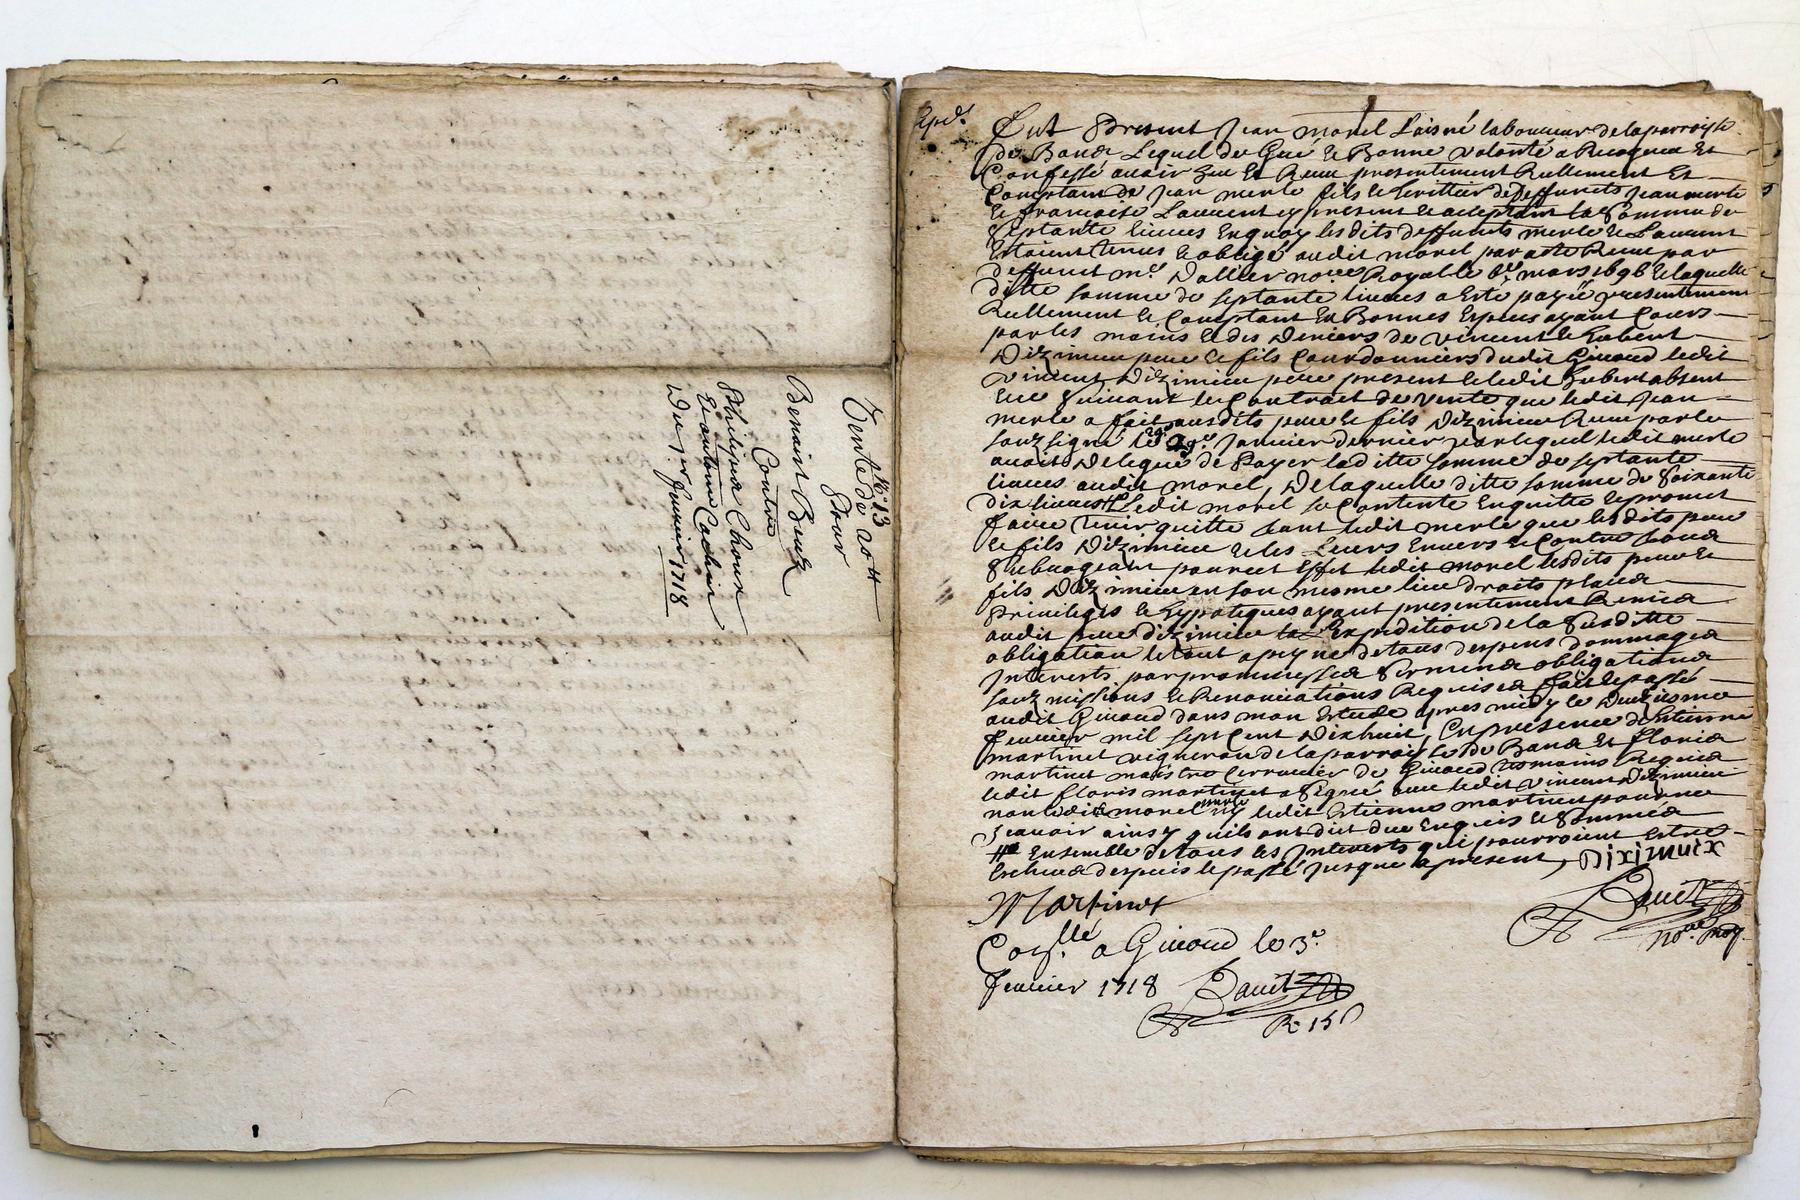 N.° 13
Vente de 20 tt
Pour
Benoist
Contre
Philipes Choux
Et antoine Cachin
Du 1.er feurier 1718
Expd.
Fut Present Jean morel Laisné laboureur de laparroisse
de Band Lequel de Gré et Bonne volonté a Recogneu Et
Confessé auoir Eu Et Receu presentement Reellement Et
Comptant de Jean merle fils et heritier de deffuncts Jean merle
et francoise Laurent cy present et acceptant la Somme de
Septante liures Enquoy lesdits deffuncts merle et Laurent
Estoient tenus et obligé audit morel par acte Receu par
deffunct m.e Dallier no.re Royal le 6.e mars 1696 et laquelle
ditte somme de septante liures a Esté payée presentement
Reellement et Comptant En Bonnes Especes ayant Cours
par les mains et des deniers de vincent et hubert
Diximieu pere et fils Courdonniers dudit Giuord ledit
vincent Diximieu pere present et ledit hubert absent
Ece Suiuant le Contract de vente que ledit Jean
merle a fait ausdits pere et fils diximieu Receu par le
soubsigné le 29.e Januier dernier par lequel ledit merle
auoit Delegué de Payer laditte somme de septante
liures audit morel, De laquelle ditte somme de Soixante
dix liures # ledit morel se Contente Enquitte et promet
faire tenir quitte tant ledit merle que lesdits pere
et fils Diximieu et les Leurs Enuers et Contre tous
Subrogeant pour cet Effet ledit morel lesdits pere et
fils Diximieu en son mesme lieu droits place
Priuileges et hypoteques ayant presentement Remis
audit pere diximieu Expedition de la Susditte
obligation le tout a peyne de tous despens dommages
Interests par promesses Serment obligations
soubmissions et Renonciations Requises fait et passé
audit Giuord dans mon Estude apres midy le Deuxiesme
feurier mil sept Cent Dixhuit, En presence de Estienne
martinet vigneron de la parroisse de Band Et floris
martinet maistre serrurier de Giuord tesmoins Requis
ledit floris martinet a Signé auec ledit vincent Diximieu
non ledit morel merle ny ledit Estienne martinet pour ne
scauoir ainsy quils ont dict due Enquis et Sommés
# Ensemble de tous les Interests qui pourroient Estre
Escheus despuis le passé Jusque a present, Diximieux
Martinet
no.re Roy.
Con.llé a Giuord le 3.e
feurier 1718
R. 15 s